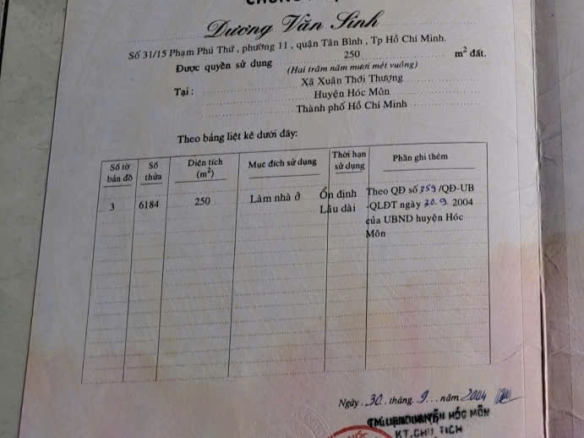 Dương Văn Sinh
Số 31/15 Phạm Phú Thứ, phường 11, quận Tân Bình, Tp Hồ Chí Minh.
Được quyền sử dụng 250 m² đất.
(Hai trăm năm mươi mét vuông)
Tại: Xã Xuân Thới Thượng
Huyện Hóc Môn
Thành phố Hồ Chí Minh
Theo bảng liệt kê dưới đây:
Số tờ bản đồ Số thửa Diện tích (m²) Mục đích sử dụng Thời hạn sử dụng Phần ghi thêm
3 6184 250 Làm nhà ở Ổn định Lâu dài
Theo QĐ số 759/QĐ-UB
-QLĐT ngày 20.9.2004
của UBND huyện Hóc
Môn
Ngày 30 tháng 9 năm 2004
HUYỆN HÓC MÔN
KT.CHỦ TỊCH